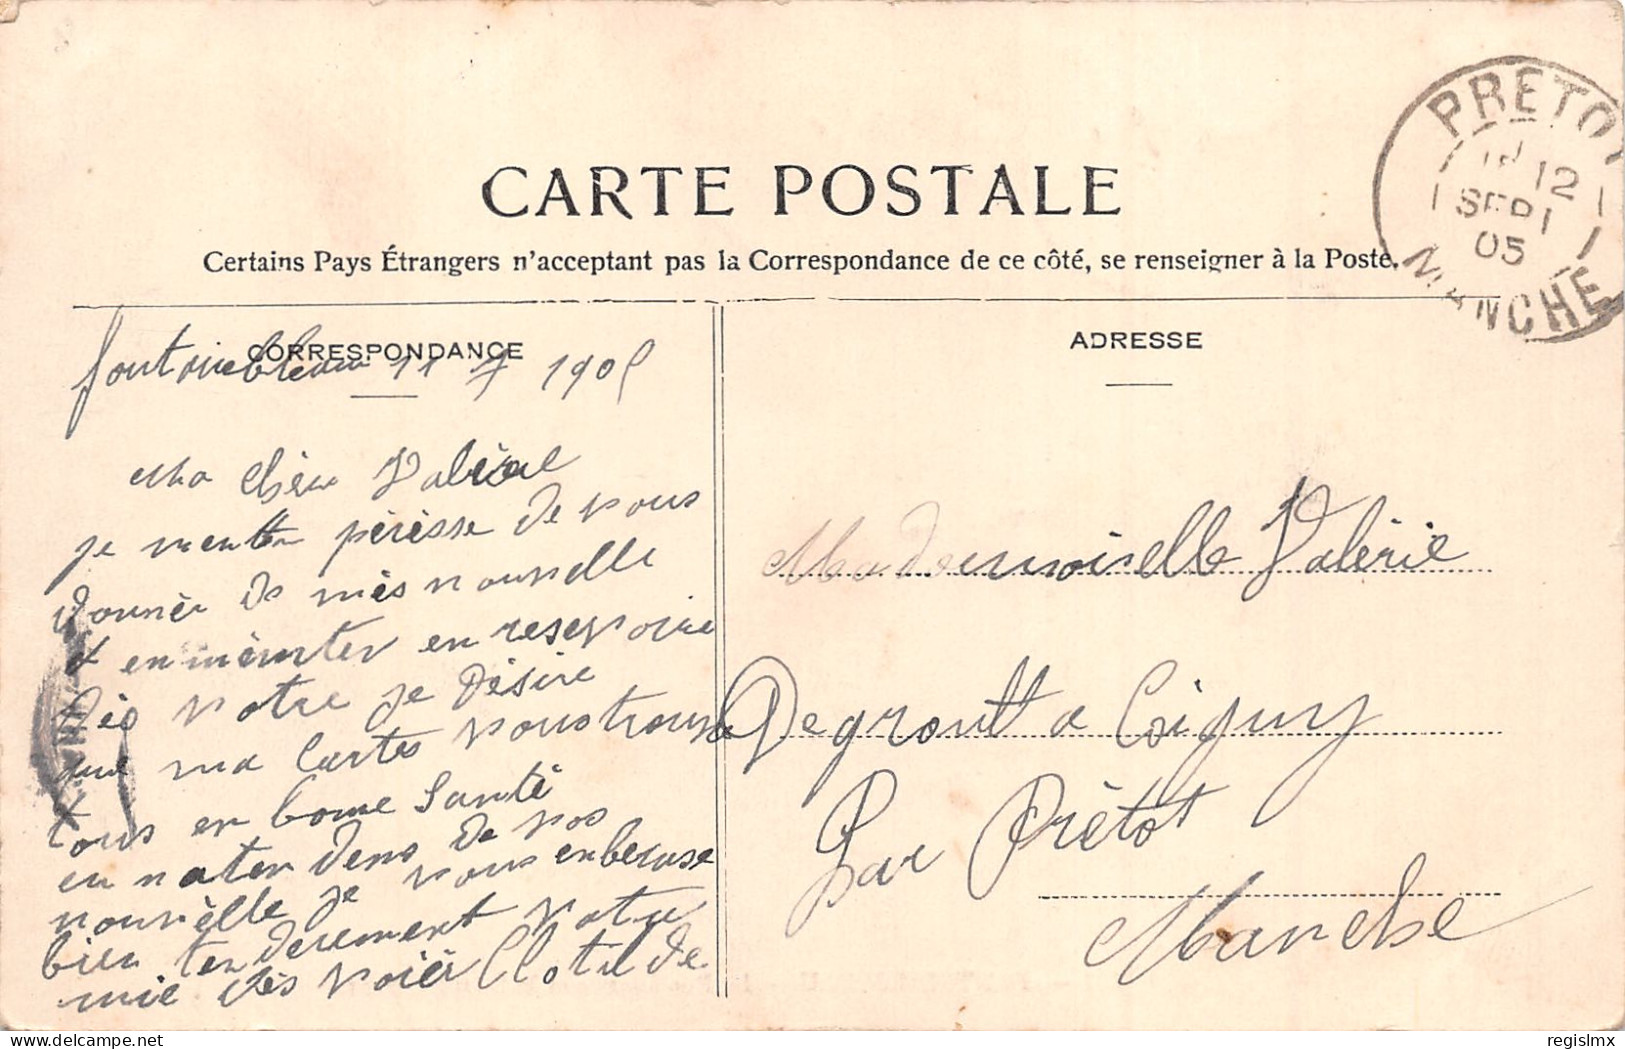 CARTE POSTALE
Certains Pays Étrangers n'acceptant pas la Correspondance de ce côté, se renseigner à la Poste.
PRETOT
12
SEPT
05
MANCHE
CORRESPONDANCE
fontainebleau 11 1905
ma chère Valérie
je m'en perèsse de vous
donner de mes nouvelle
en mèmter en resevoire
des votre je désire
que ma Cartes vous trouve
tous en bonne Santé
en naten dens de vos
nouvèlle je vous enberase
bien tenderement votre
mie dès Clotilde
ADRESSE
Mademoiselle Valérie
Degroult a Coigny
Par Prétot
Manche
regislmx